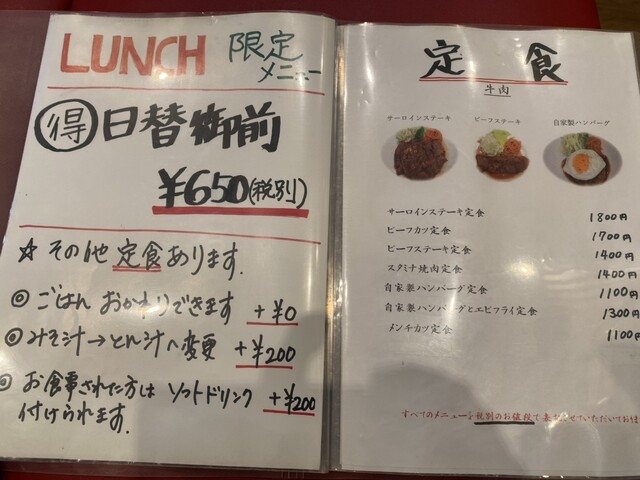 LUNCH 限定メニュー
得 日替御前
¥650(税別)
☆ その他 定食あります.
◎ ごはん おかわりできます +¥0
◎ みそ汁→とん汁へ変更 +¥200
◎ お食事された方は ソフトドリンク +¥200
付けられます.
定食
牛肉
サーロインステーキ ビーフステーキ 自家製ハンバーグ
サーロインステーキ定食 1800円
ビーフカツ定食 1700円
ビーフステーキ定食 1400円
スタミナ焼肉定食 1400円
自家製ハンバーグ定食 1100円
自家製ハンバーグとエビフライ定食 1300円
メンチカツ定食 1100円
すべてのメニューを税別のお値段で表示させていただいております